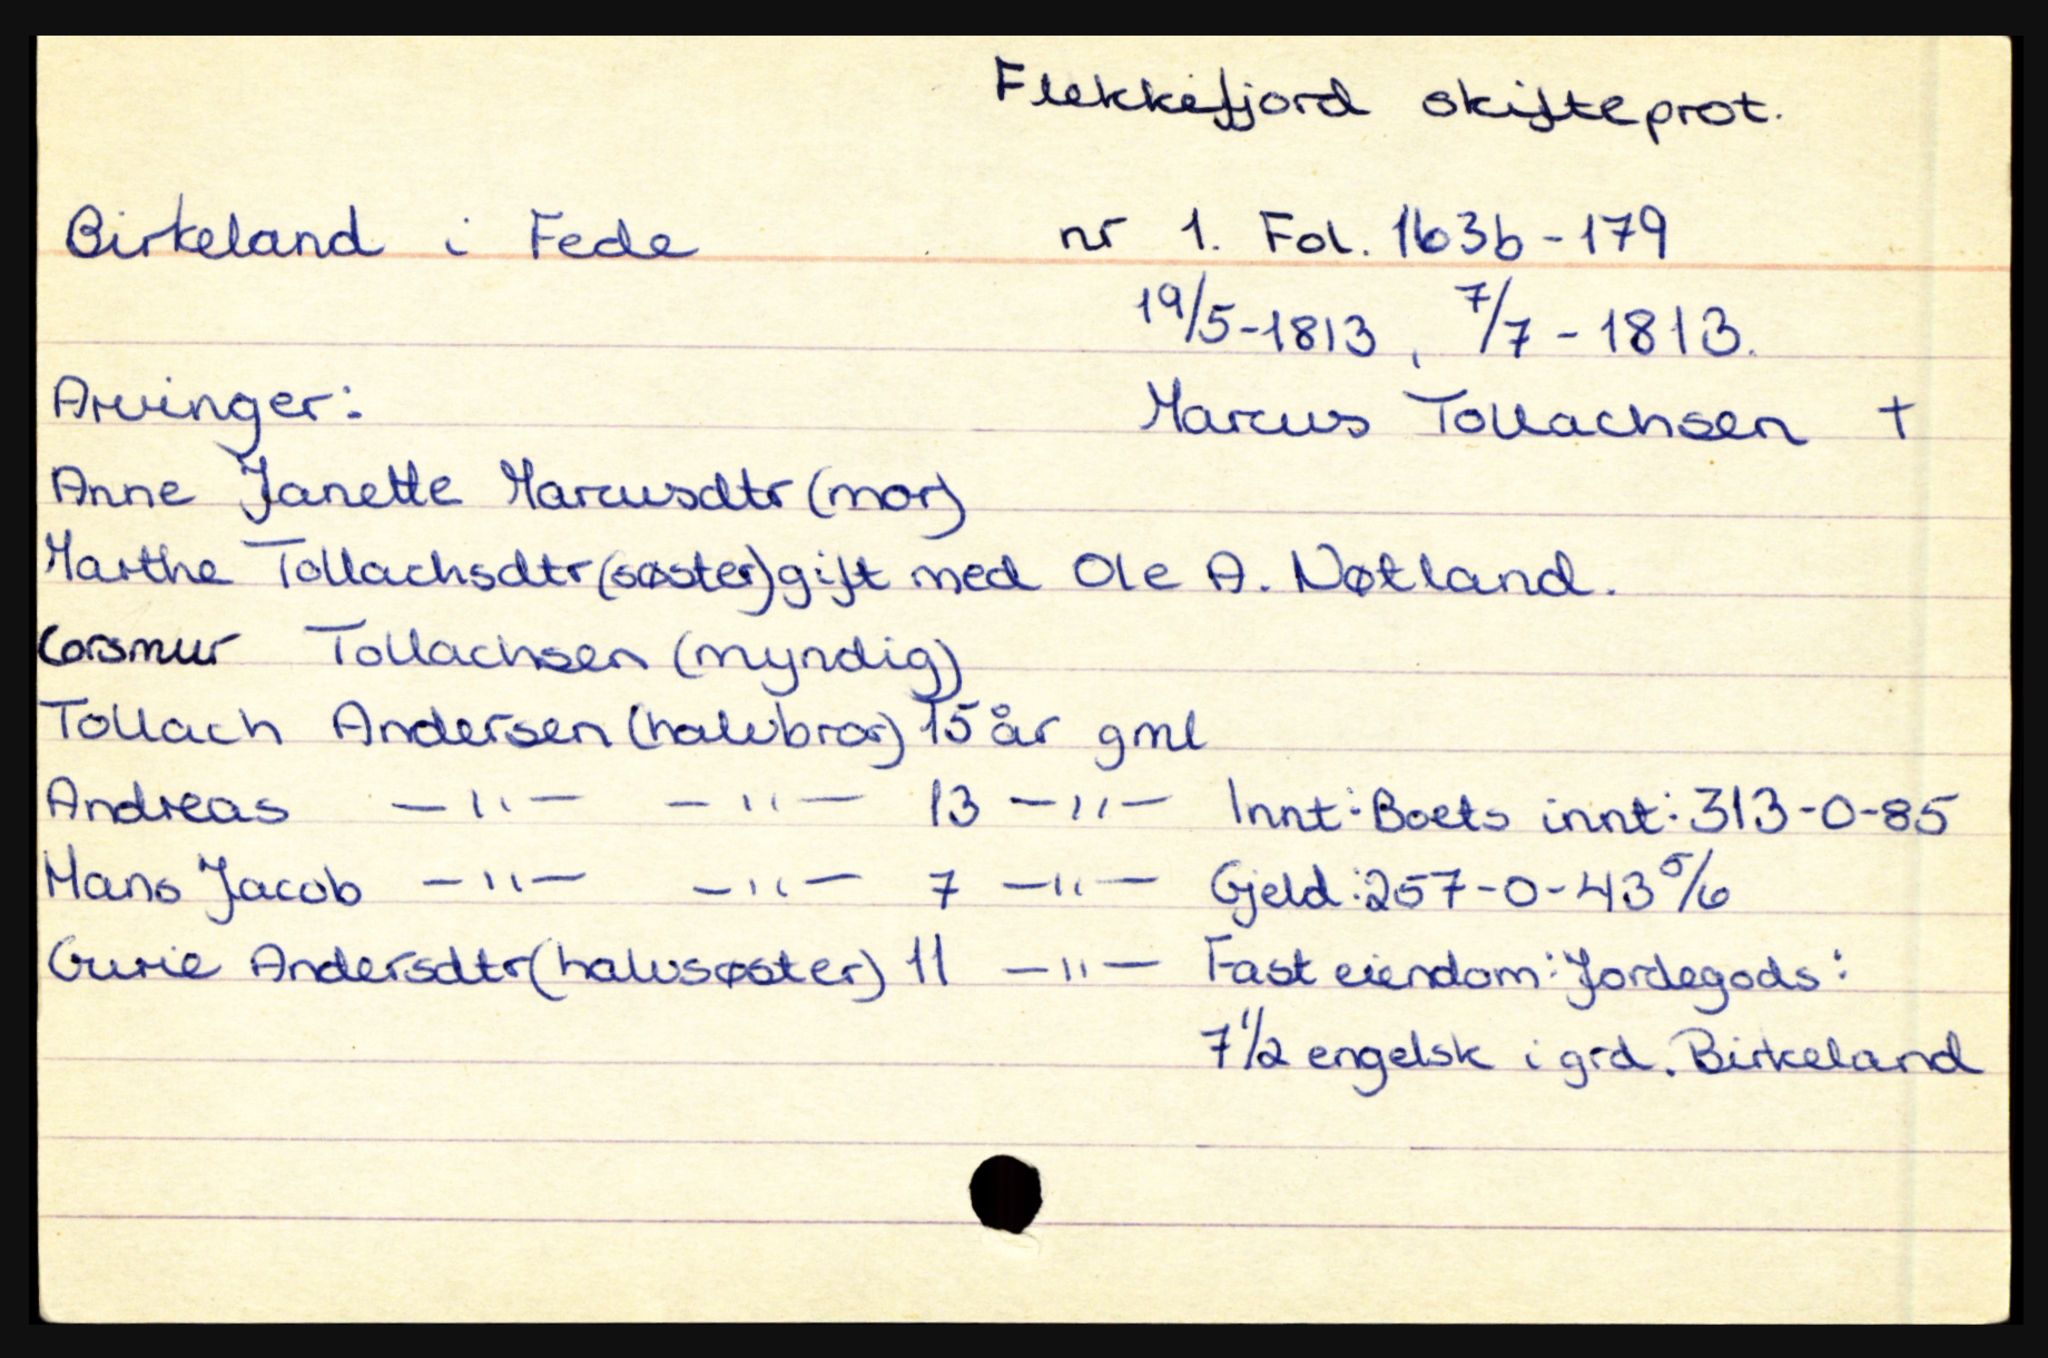 Flekkefjord skifteprot.
Birkeland i Fede nr 1. Fol. 163b-179
19/5-1813, 7/7-1813.
Arvinger: Marcus Tollachsen †
Anne Janette Marcusdtr (mor)
Marthe Tollachsdtr (søster) gift med Ole A. Nøtland.
Corsmur Tollachsen (myndig)
Tollach Andersen (halvbror) 15 år gml
Andreas —"— —"— 13 —"— Innt: Boets innt: 313-0-85
Hans Jacob —"— —"— 7 —"— Gjeld: 257-0-43 5/6
Gurie Andersdtr (halvsøster) 11 —"— Fast eiendom: Jordegods:
7 1/2 engelsk i grd. Birkeland